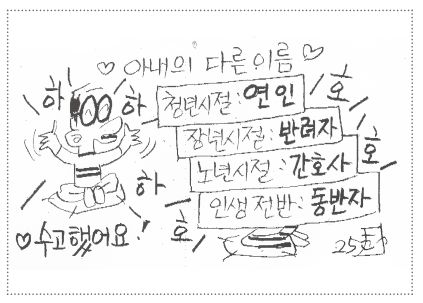 ♡ 아내의 다른 이름 ♡
하 하 청년시절 : 연인 호
장년시절 : 반려자
노년시절 : 간호사 호
하 인생 전반 : 동반자
♡ 수고했어요! 호 25회